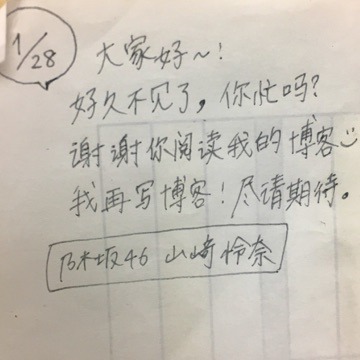 1/28
大家好～!
好久不见了，你忙吗?
谢谢你阅读我的博客
我再写博客!尽请期待。
乃木坂46 山崎怜奈